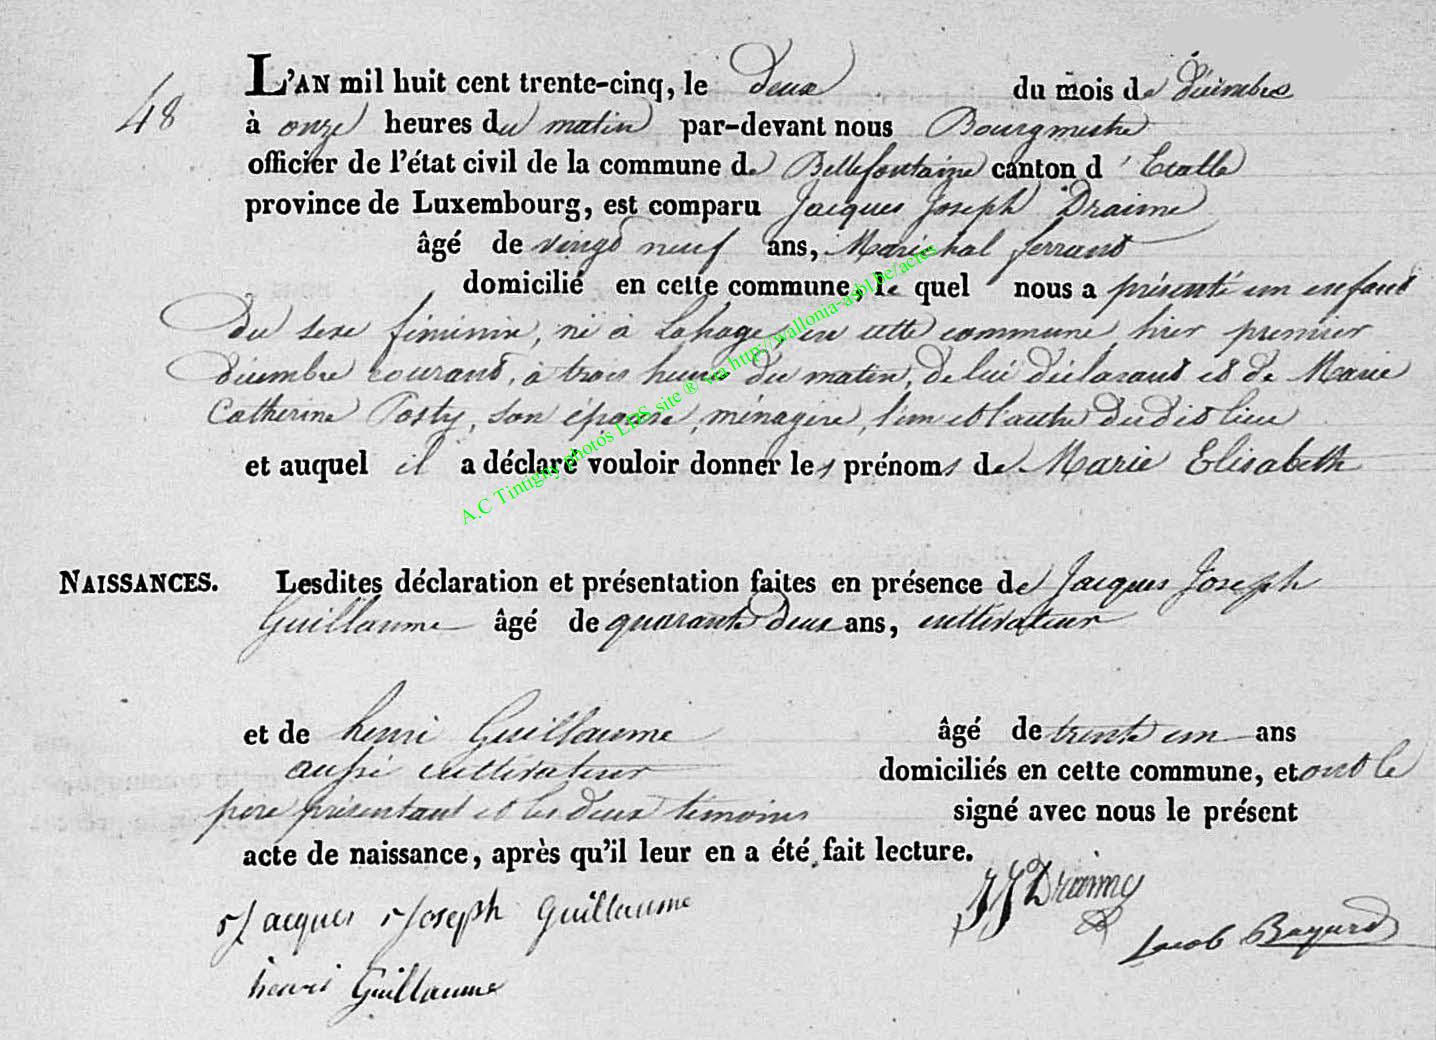 L'AN mil huit cent trente-cinq, le deux du mois de décembre
48
à onze heures du matin par-devant nous Bourgmestre
officier de l'état civil de la commune de Bellefontaine canton d'Etalle
province de Luxembourg, est comparu Jacques Joseph Draime
âgé de vingt neuf ans, Maréchal ferrant
domicilié en cette commune, le quel nous a présenté un enfant
du sexe féminin, né à Lahage, en cette commune, hier premier
décembre courant, à trois heures du matin, de lui déclarant et de Marie
Catherine Posty, son épouse, ménagère, l'un et l'autre dudit lieu
et auquel il a déclaré vouloir donner les prénoms de Marie Elisabeth
A.C Tintigny photos LDS site ® via http://wallonia-asbl.be/actes
NAISSANCES. Lesdites déclaration et présentation faites en présence de Jacques Joseph
Guillaume âgé de quarante deux ans, cultivateur
et de henri Guillaume âgé de trente un ans
aussi cultivateur domiciliés en cette commune, et ont le
pere présentant et les deux témoins signé avec nous le présent
acte de naissance, après qu'il leur en a été fait lecture.
Jacques Joseph Guillaume JJ Draime
Jacob Bayard
henri Guillaume